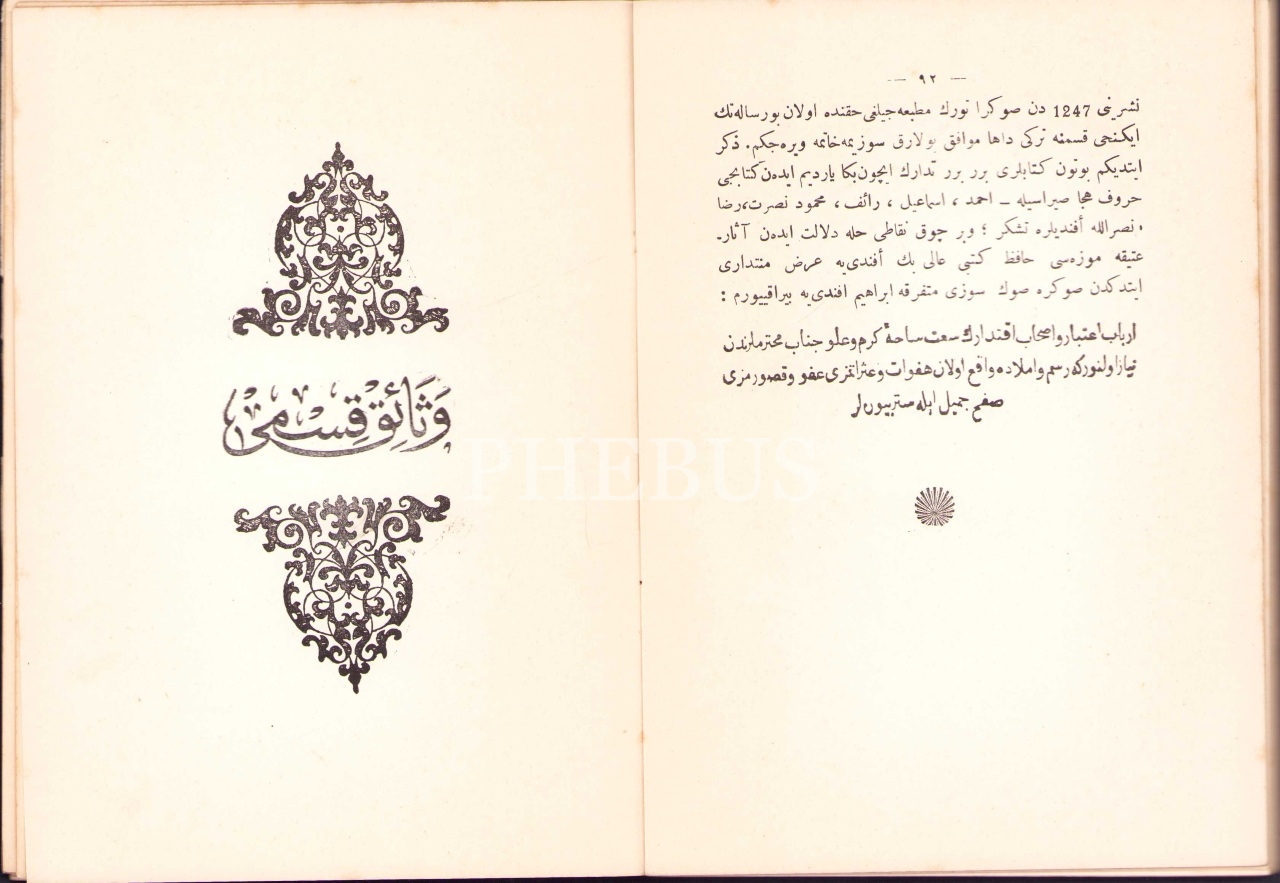 — ٩٢ —
نشرینی 1247 دن صوکرا تورك مطبعه‌جیلغی حقنده اولان بو رساله‌نك
ایکنجی قسمنه ترکی داها موافق بولارق سوزیمه خاتمه ویره‌جکم. ذکر
ایتدیکم بوتون کتابلری برر برر تدارك ایچون بکا یاردیم ایده‌ن کتابجی
حروف هجا صیراسیله ــ احمد ، اسماعیل ، رائف ، محمود نصرت، رضا
نصرالله أفندیلره تشکر ؛ وبر چوق نقاطی حله دلالت ایده‌ن آثارـ
عتیقه موزه‌سی حافظ کتبی عالی بك أفندی‌یه عرض منتداری
ایتدکدن صوکره صوك سوزی متفرقه ابراهیم افندی‌یه بیراقییورم :
ارباب اعتبار و اصحاب اقتدارك سعت ساحهٔ کرم و علو جناب محترملرندن
نیاز اولنورکه رسم و املاده واقع اولان هفوات و عثراتمزی عفو و قصورمزی
صفح جمیل ایله ستر بیوره‌لر
وَثَائِق قِسمی
PHEBUS